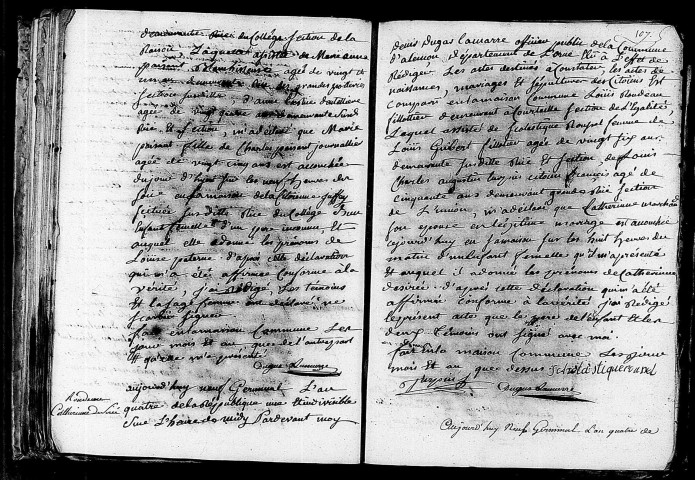 demeurante Rue du Collége Section de la
Raison Laquelle assistée de Marie anne
agée de vingt et
un an
Section susditte, d'anne
agée de vingt quatre ans demeurante Susd
Rue et Section, m'a déclaré que Marie
poisson fille de Charles poisson journallier
agée de vingt cinq ans est accouchée
du jour d'hier sur les neuf heures du
Soir en la maison de la Citoyenne
Scituée Susditte Rue du Collége d'un
Enfant femelle d'un pere inconnu, Et
auquel elle a donné les prénoms de
Louise d'après cette déclaration
qu'on m'a été affirmée Conforme à la
vérité, j'ai Rédigé. Les témoins
et la sage femme ont déclaré ne
Scavoir signer
fait en la maison Commune Les
jour mois et an que de l'autre part
Dugas Lamarre
Rondeau
Catherine desirée
aujourd'huy neuf Germinal L'an
quatre de la République une et indivisible
Sur L'heure de midy Pardevant moy
107.
denis Dugas Lamarre officier public de la Commune
d'alencon, département de L'orne Elu à L'effet de
Rédiger Les actes destinés à Constater les actes de
naissances, mariages et Sépultures des Citoyens Est
Comparu en la maison Commune Louis Rondeau
filottier demeurant à Courteille Section de L'Egalité
Lequel assisté de Scolastique Roussel femme de
Louis Guibert filottier agée de vingt six ans
demeurante Susditte Rue et Section et de Louis
Charles augustin citoÿen français agé de
Cinquante ans demeurant grande Rue Section
de L'union, m'a déclaré que Catherinne marchand
Son épouse en légitime mariage est accouchée
aujourd'huy en sa maison sur les huit heures du
matin d'un Enfant femelle qu'il m'a présenté
et auquel il a donné les prénoms de Catherinne
desirée d'après cette déclaration qu'on m'a été
affirmée conforme à la vérité j'ai Rédigé
le présent acte que le pere de l'enfant et les
deux témoins ont signé avec moi.
fait en la maison Commune Les jour
mois et an que dessus Scholastique rousel
Dugas Lamarre
Aujourd'huy Neuf Germinal L'an quatre de